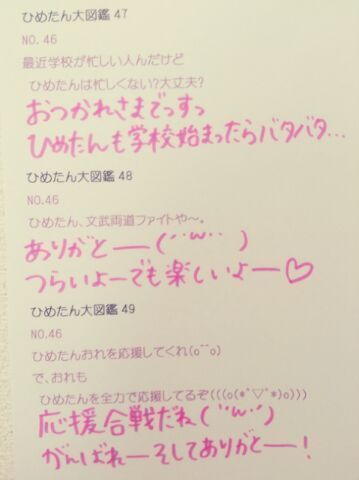 ひめたん大図鑑 47
NO.46
最近学校が忙しい人んだけど
ひめたんは忙しくない?大丈夫?
おつかれさまでっすっ
ひめたんも学校始まったらバタバタ…
ひめたん大図鑑 48
NO.46
ひめたん、文武両道ファイトや〜。
ありがとー(´˙ω˙`)
つらいよーでも楽しいよー♡
ひめたん大図鑑 49
NO.46
ひめたんおれを応援してくれ(o^^o)
で、おれも
ひめたんを全力で応援してるぞ(((o(*ﾟ▽ﾟ*)o)))
応援合戦だね(´˙ω˙`)
がんばれーそしてありがとー!